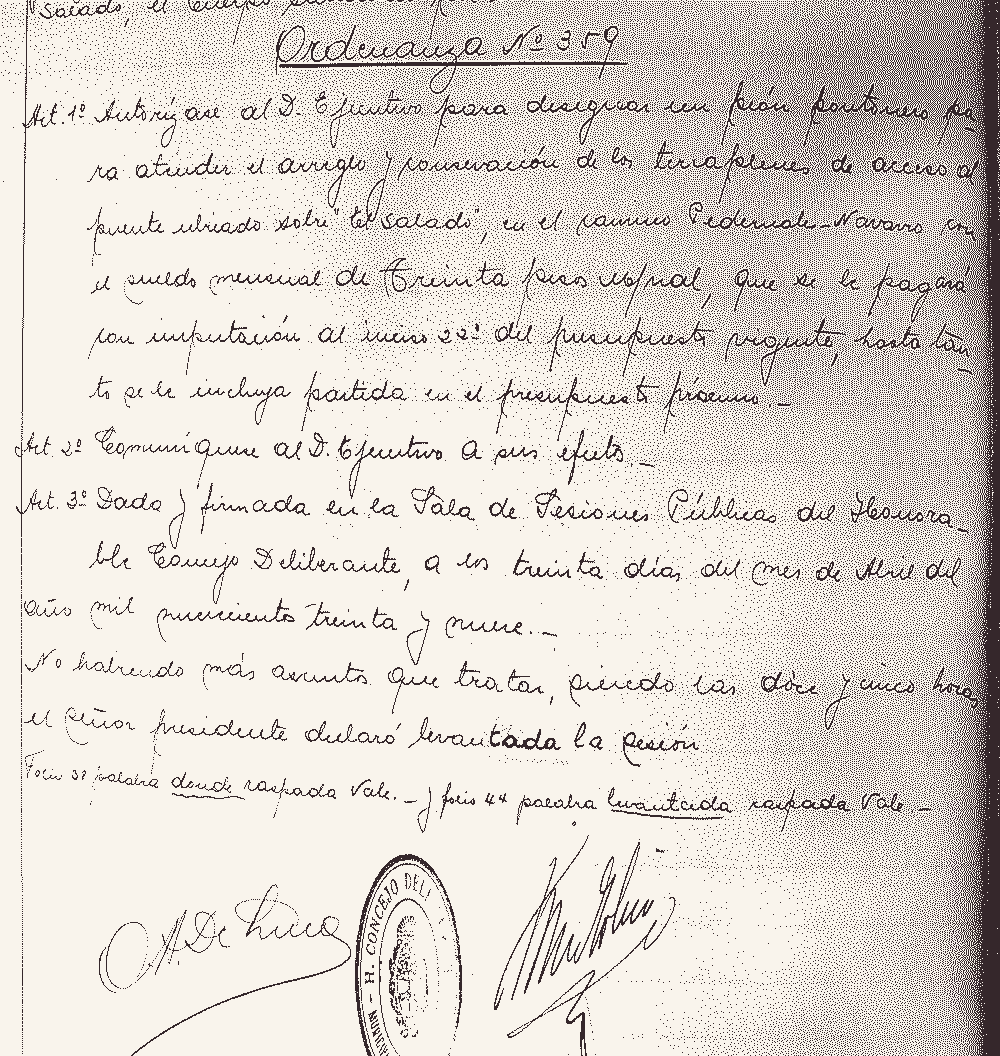 Salado, el Cuerpo
Ordenanza Nº 359
Art. 1º Autorízase al D. Ejecutivo para designar un peón portonero pa-
ra atender el arreglo y conservación de los terraplenes de acceso al
puente ubicado sobre "El Salado", en el camino Pedernales-Navarro con
el sueldo mensual de Treinta pesos m/nal, que se le pagará
con imputación al inciso 22º del presupuesto vigente, hasta tan-
to se le incluya partida en el presupuesto próximo.-
Art. 2º Comuníquese al D. Ejecutivo a sus efectos.-
Art. 3º Dada y firmada en la Sala de Sesiones Públicas del Honora-
ble Concejo Deliberante, a los treinta días del mes de Abril del
año mil novecientos treinta y nueve.-
No habiendo más asuntos que tratar, siendo las doce y cinco horas
el señor presidente declaró levantada la sesión
Folio palabra donde raspada Vale.- y folio 44 palabra levantada raspada Vale-
A. De Luca
H. CONCEJO DELI